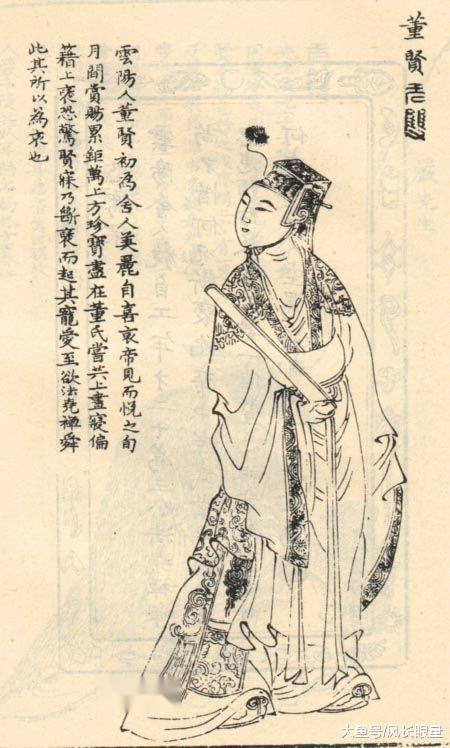 董賢
雲陽人董賢初為舍人美麗自喜哀帝見而悅之旬
月間賞賜累鉅萬上方珍寶盡在董氏嘗共上晝寢偏
籍上褎恐驚賢寐乃斷褎而起其寵愛至欲法堯禪舜
此其所以為哀也
大鱼号/风长眼量